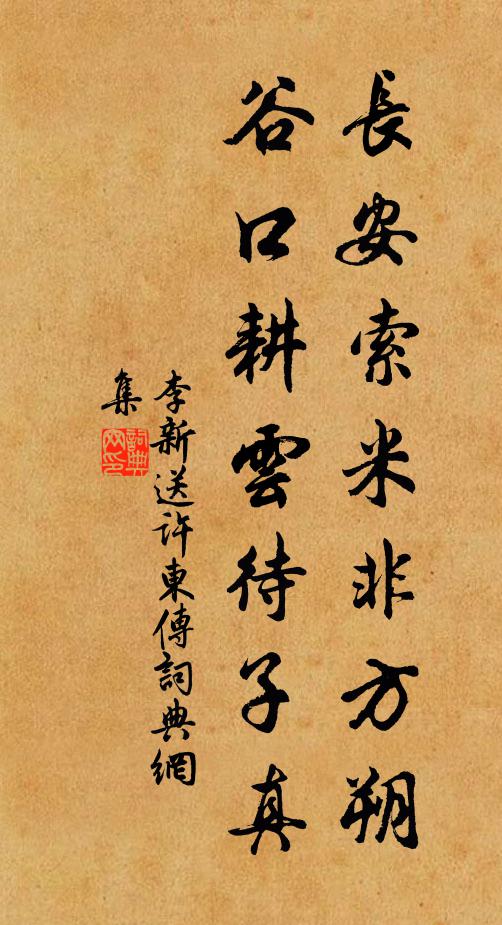 長安索米非方朔
谷口耕雲待子真
李新送許東傳詞典網
集
詞典
网印